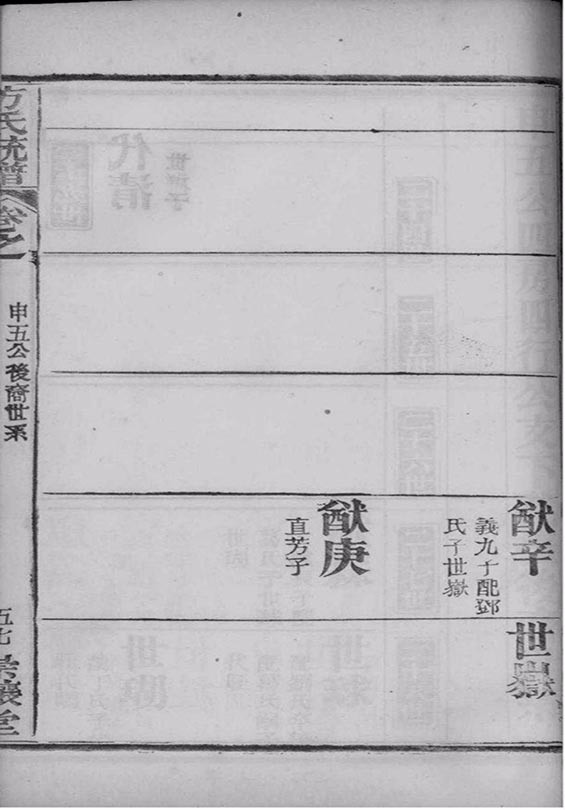 猷辛
義九子配鄧
氏子世嶽
世嶽
猷庚
直芳子
方氏統譜
卷之一
申五公後裔世系
五七